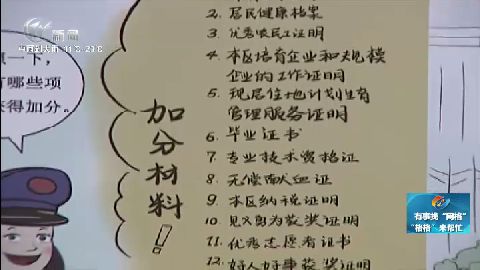 新闻
2. 居民健康档案
3. 优秀农民工证明
4. 本区培育企业和规模
企业的工作证明
5. 现居住地计划生育
管理服务证明
6. 毕业证书
7. 专业技术资格证
8. 无偿献血证
9. 本区纳税证明
10. 见义勇为获奖证明
11. 优秀志愿者证书
12. 好人好事获奖证明
加分材料!
想一下,
有哪些项
获得加分。
有事找“网格”
“格格”来帮忙